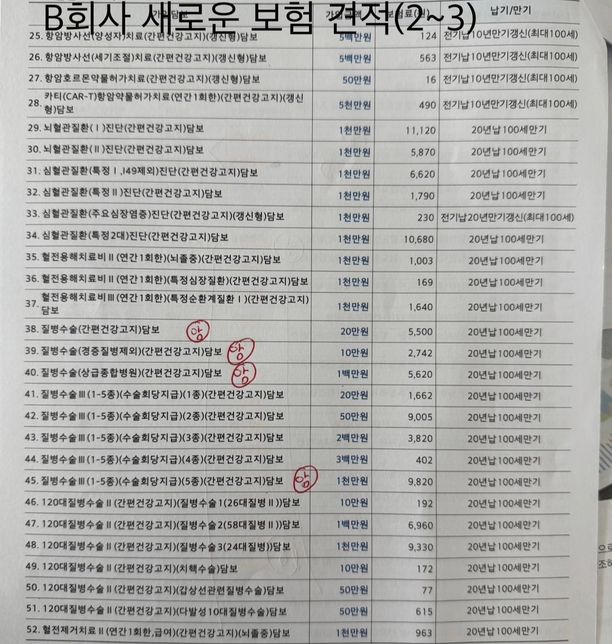 B회사 새로운 보험 견적(2~3)
납기/만기
25. 항암방사선(양성자)치료(간편건강고지)(갱신형)담보 5백만원 124 전기납10년만기갱신(최대100세)
26. 항암방사선(세기조절)치료(간편건강고지)(갱신형)담보 5백만원 563 전기납10년만기갱신(최대100세)
27. 항암호르몬약물허가치료(간편건강고지)(갱신형)담보 50만원 16 전기납10년만기갱신(최대100세)
28. 카티(CAR-T)항암약물허가치료(연간1회한)(간편건강고지)(갱신형)담보 5천만원 490 전기납10년만기갱신(최대100세)
29. 뇌혈관질환(Ⅰ)진단(간편건강고지)담보 1천만원 11,120 20년납100세만기
30. 뇌혈관질환(Ⅱ)진단(간편건강고지)담보 1천만원 5,870 20년납100세만기
31. 심혈관질환(특정Ⅰ,I49제외)진단(간편건강고지)담보 1천만원 6,620 20년납100세만기
32. 심혈관질환(특정Ⅱ)진단(간편건강고지)담보 1천만원 1,790 20년납100세만기
33. 심혈관질환(주요심장염증)진단(간편건강고지)(갱신형)담보 1천만원 230 전기납20년만기갱신(최대100세)
34. 심혈관질환(특정2대)진단(간편건강고지)담보 1천만원 10,680 20년납100세만기
35. 혈전용해치료비Ⅱ(연간1회한)(뇌졸중)(간편건강고지)담보 1천만원 1,003 20년납100세만기
36. 혈전용해치료비Ⅱ(연간1회한)(특정심장질환)(간편건강고지)담보 1천만원 169 20년납100세만기
37. 혈전용해치료비Ⅲ(연간1회한)(특정순환계질환Ⅰ)(간편건강고지)담보 1천만원 1,640 20년납100세만기
38. 질병수술(간편건강고지)담보 암 20만원 5,500 20년납100세만기
39. 질병수술(경증질병제외)(간편건강고지)담보 암 10만원 2,742 20년납100세만기
40. 질병수술(상급종합병원)(간편건강고지)담보 암 1백만원 5,620 20년납100세만기
41. 질병수술Ⅲ(1-5종)(수술회당지급)(1종)(간편건강고지)담보 20만원 1,662 20년납100세만기
42. 질병수술Ⅲ(1-5종)(수술회당지급)(2종)(간편건강고지)담보 50만원 9,005 20년납100세만기
43. 질병수술Ⅲ(1-5종)(수술회당지급)(3종)(간편건강고지)담보 2백만원 3,820 20년납100세만기
44. 질병수술Ⅲ(1-5종)(수술회당지급)(4종)(간편건강고지)담보 3백만원 402 20년납100세만기
45. 질병수술Ⅲ(1-5종)(수술회당지급)(5종)(간편건강고지)담보 암 1천만원 9,820 20년납100세만기
46. 120대질병수술Ⅱ(간편건강고지)(질병수술1(26대질병Ⅱ))담보 10만원 192 20년납100세만기
47. 120대질병수술Ⅱ(간편건강고지)(질병수술2(58대질병Ⅱ))담보 1백만원 6,960 20년납100세만기
48. 120대질병수술Ⅱ(간편건강고지)(질병수술3(24대질병))담보 1천만원 9,330 20년납100세만기
49. 120대질병수술Ⅱ(간편건강고지)(치핵수술)담보 10만원 172 20년납100세만기
50. 120대질병수술Ⅱ(간편건강고지)(갑상선관련질병수술)담보 50만원 77 20년납100세만기
51. 120대질병수술Ⅱ(간편건강고지)(다발성10대질병수술)담보 50만원 615 20년납100세만기
52. 혈전제거치료Ⅱ(연간1회한,급여)(간편건강고지)(뇌졸중)담보 1천만원 963 20년납100세만기